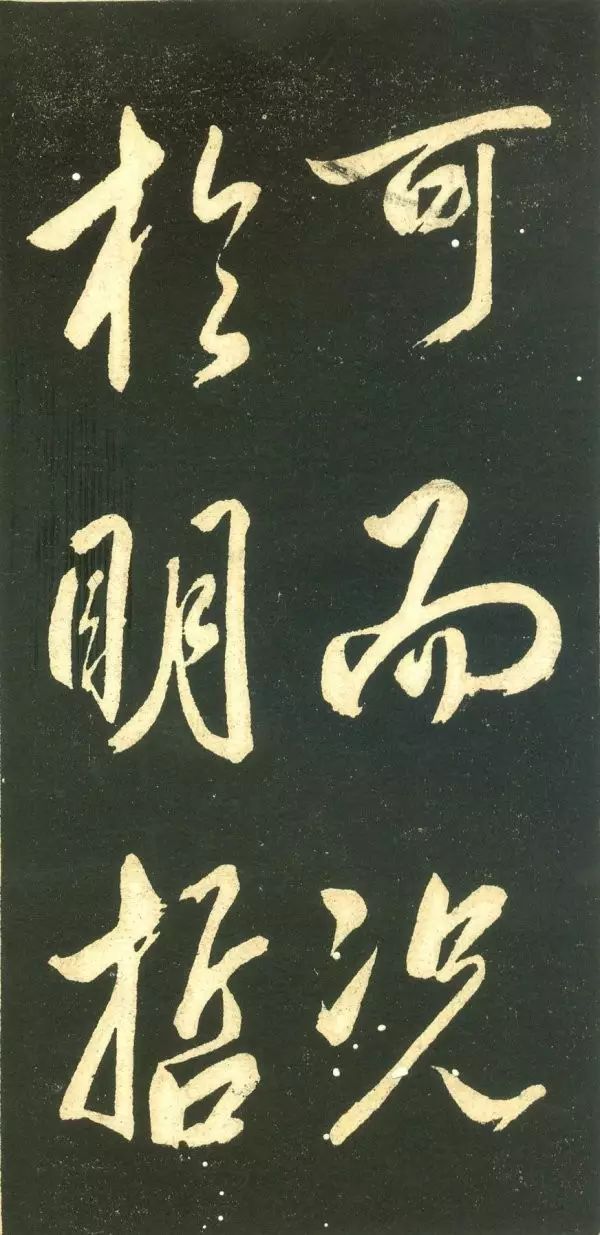 可而况
於明哲